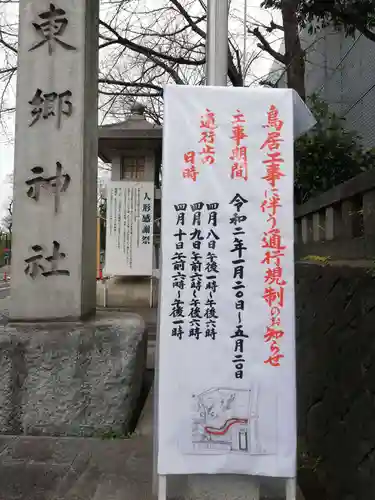 東郷神社
人形感謝祭
鳥居工事に伴う通行規制のお知らせ
工事期間 令和二年一月二〇日～五月二〇日
通行止の日時
四月八日 午後一時～午後六時
四月九日 午前六時～午後六時
四月十日 午前六時～午後一時